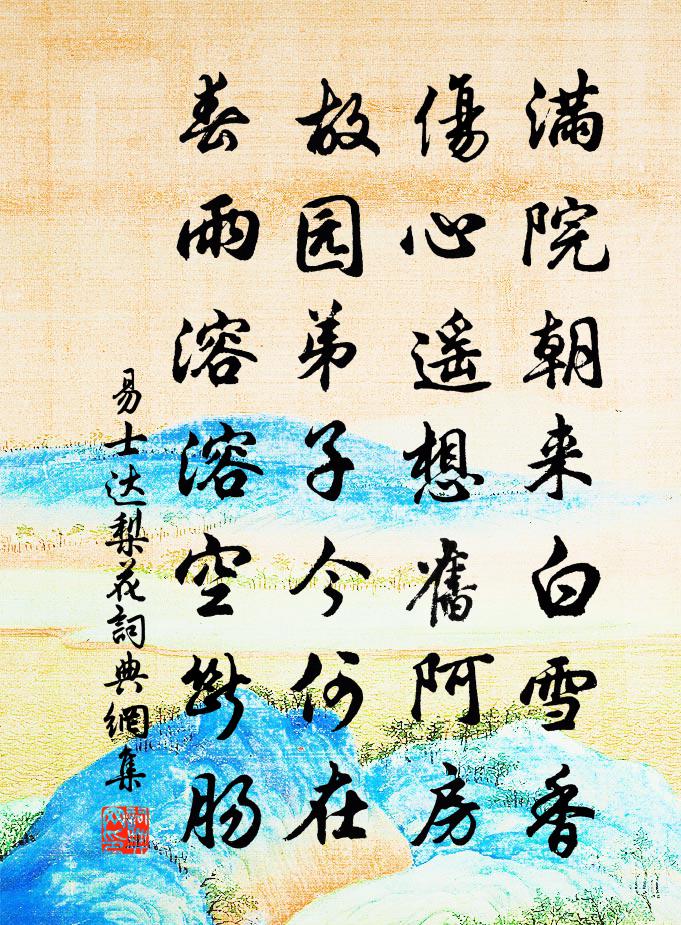 满院朝来白雪香
傷心遥想舊阿房
故园弟子今何在
春雨溶溶空断肠
易士达梨花詞典網集